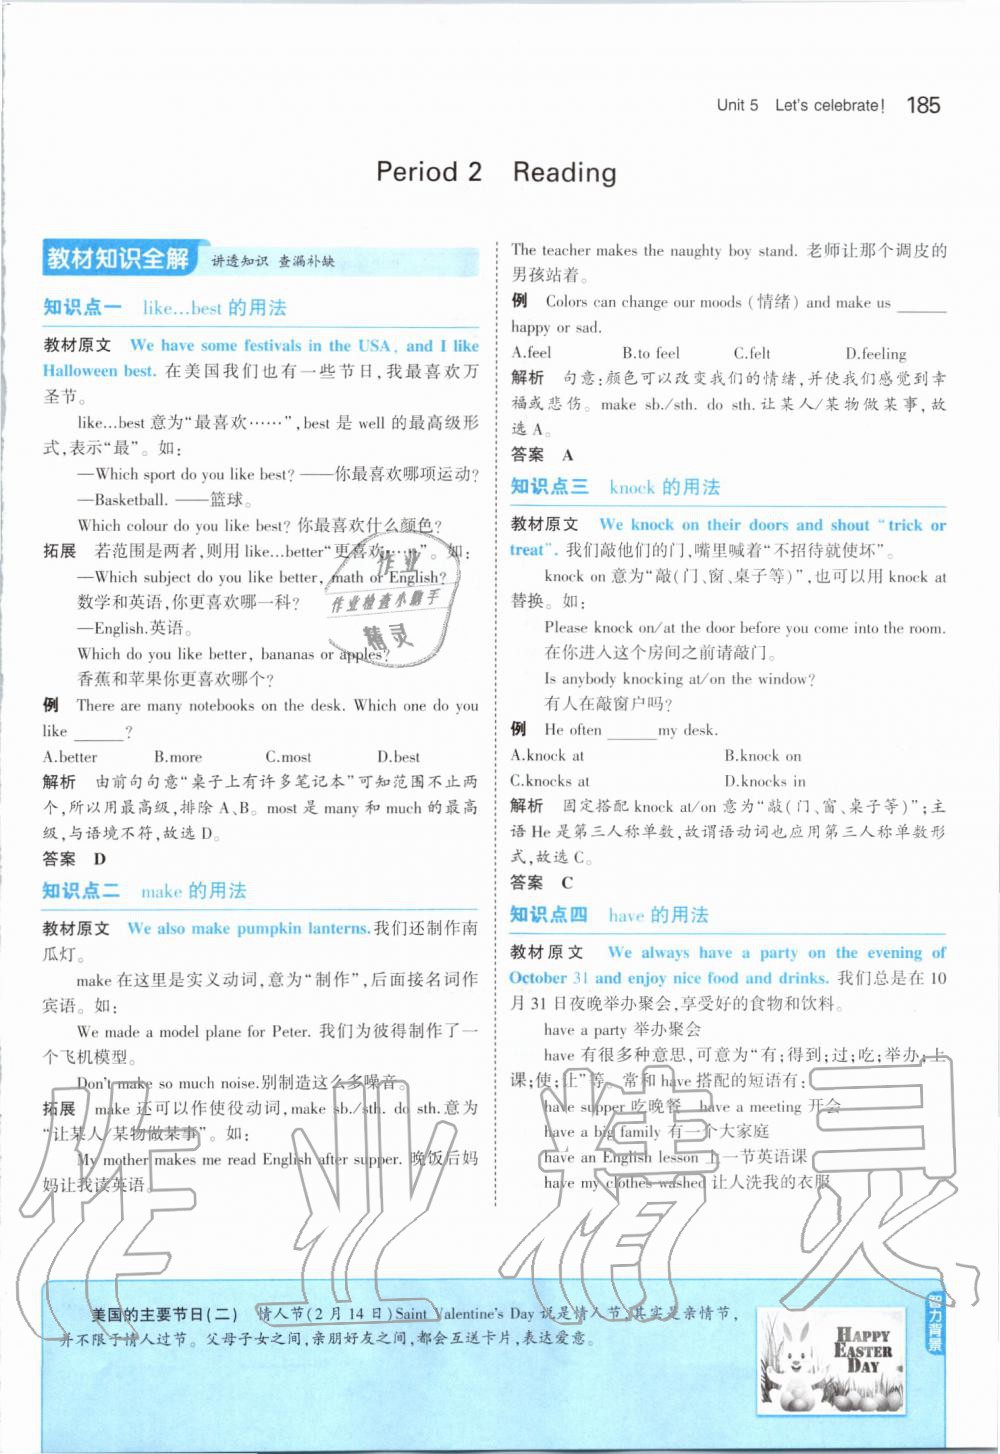 Unit 5 Let's celebrate! 185
Period 2 Reading
教材知识全解 讲透知识 查漏补缺
知识点一 like…best 的用法
教材原文 We have some festivals in the USA, and I like
Halloween best. 在美国我们也有一些节日,我最喜欢万
圣节。
like…best 意为“最喜欢……”,best 是 well 的最高级形
式,表示“最”。如:
—Which sport do you like best? ——你最喜欢哪项运动?
—Basketball. ——篮球。
Which colour do you like best? 你最喜欢什么颜色?
拓展 若范围是两者,则用 like…better“更喜欢……”。如:
—Which subject do you like better, math or English?
数学和英语,你更喜欢哪一科?
—English.英语。
Which do you like better, bananas or apples?
香蕉和苹果你更喜欢哪个?
例 There are many notebooks on the desk. Which one do you
like ______?
A.better B.more C.most D.best
解析 由前句句意“桌子上有许多笔记本”可知范围不止两
个,所以用最高级,排除 A、B。most 是 many 和 much 的最高
级,与语境不符,故选 D。
答案 D
知识点二 make 的用法
教材原文 We also make pumpkin lanterns.我们还制作南
瓜灯。
make 在这里是实义动词,意为“制作”,后面接名词作
宾语。如:
We made a model plane for Peter. 我们为彼得制作了一
个飞机模型。
Don't make so much noise.别制造这么多噪音。
拓展 make 还可以作使役动词,make sb./sth. do sth.意为
“让某人/某物做某事”。如:
My mother makes me read English after supper. 晚饭后妈
妈让我读英语。
The teacher makes the naughty boy stand. 老师让那个调皮的
男孩站着。
例 Colors can change our moods (情绪) and make us ______
happy or sad.
A.feel B.to feel C.felt D.feeling
解析 句意:颜色可以改变我们的情绪,并使我们感觉到幸
福或悲伤。make sb./sth. do sth.让某人/某物做某事,故
选 A。
答案 A
知识点三 knock 的用法
教材原文 We knock on their doors and shout “trick or
treat”. 我们敲他们的门,嘴里喊着“不招待就使坏”。
knock on 意为“敲(门、窗、桌子等)”,也可以用 knock at
替换。如:
Please knock on/at the door before you come into the room.
在你进入这个房间之前请敲门。
Is anybody knocking at/on the window?
有人在敲窗户吗?
例 He often ______my desk.
A.knock at B.knock on
C.knocks at D.knocks in
解析 固定搭配 knock at/on 意为“敲(门、窗、桌子等)”;主
语 He 是第三人称单数,故谓语动词也应用第三人称单数形
式,故选 C。
答案 C
知识点四 have 的用法
教材原文 We always have a party on the evening of
October 31 and enjoy nice food and drinks. 我们总是在 10
月 31 日夜晚举办聚会,享受好的食物和饮料。
have a party 举办聚会
have 有很多种意思,可意为“有;得到;过;吃;举办;上
课;使;让”等。常和 have 搭配的短语有:
have supper 吃晚餐 have a meeting 开会
have a big family 有一个大家庭
have an English lesson 上一节英语课
have my clothes washed 让人洗我的衣服
作业
作业检查小助手
精灵
作业精灵
美国的主要节日(二) 情人节(2 月 14 日)Saint Valentine's Day 说是情人节,其实是亲情节,
并不限于情人过节。父母子女之间,亲朋好友之间,都会互送卡片,表达爱意。
HAPPY
EASTER
DAY
智力背景